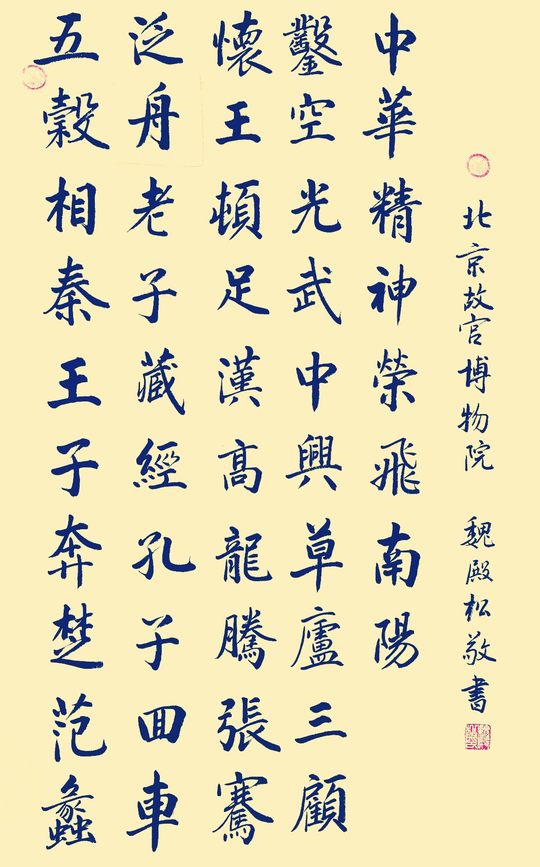 五穀相秦王子奔楚范蠡
泛舟老子藏經孔子囬車
懷王頓足漢高龍騰張騫
鑿空光武中興草廬三顧
中華精神榮飛南陽
北京故宫博物院 魏殿松敬書